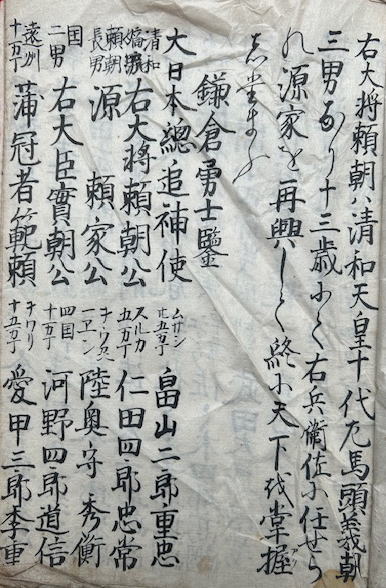 右大将頼朝ハ清和天皇十代左馬頭義朝
三男なり十三歳にて右兵衛佐に任せら
れ源家を再興して終に天下を掌握
鎌倉勇士鑑
大日本總追補使
清和
嫡孫
右大将頼朝公
頼朝
長男
源頼家公
国
二男
右大臣實朝公
遠州
十万丁
蒲冠者範頼
ムサシ
廿五万丁
畠山二郎重忠
スルカ
五万丁
仁田四郎忠常
陸奥守秀衡
四国
十万丁
河野四郎道信
ヲワリ
十五万丁
愛甲三郎季重